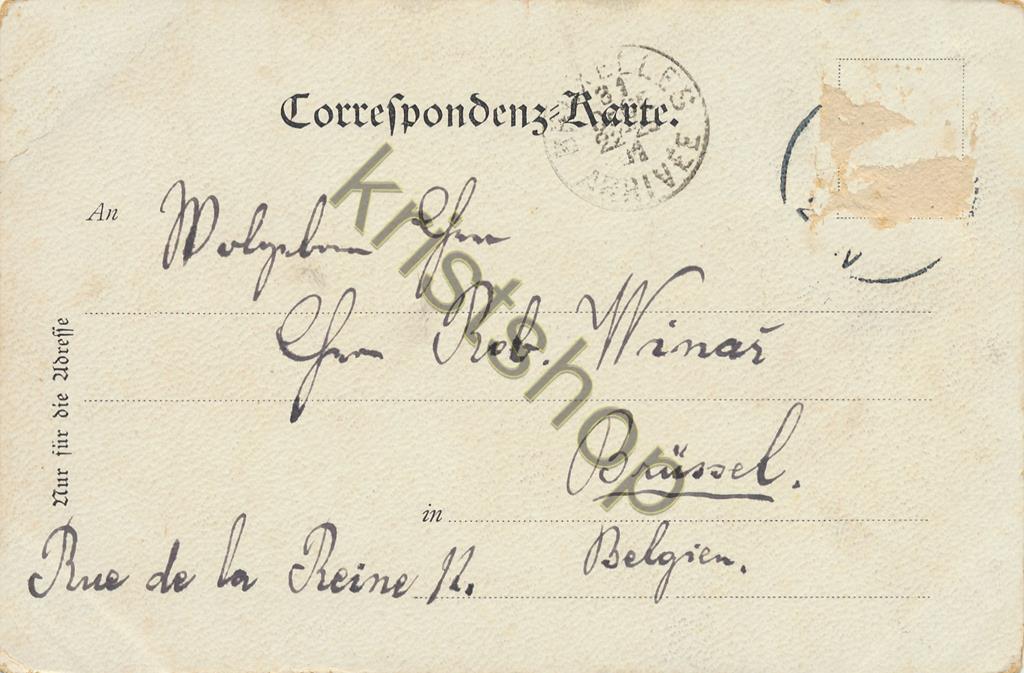 Correspondenz-Karte.
BRUXELLES
31
ARRIVÉE
An Wolgeborn Herrn
Herrn Rob. Winař
Brüssel.
in
Belgien.
Rue de la Reine 11.
Nur für die Adresse
kristshop